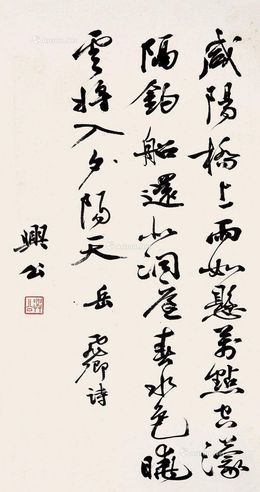 咸陽橋上雨如懸萬點空濛
隔釣船還似洞庭春水色曉
雲將入岳陽天
興公